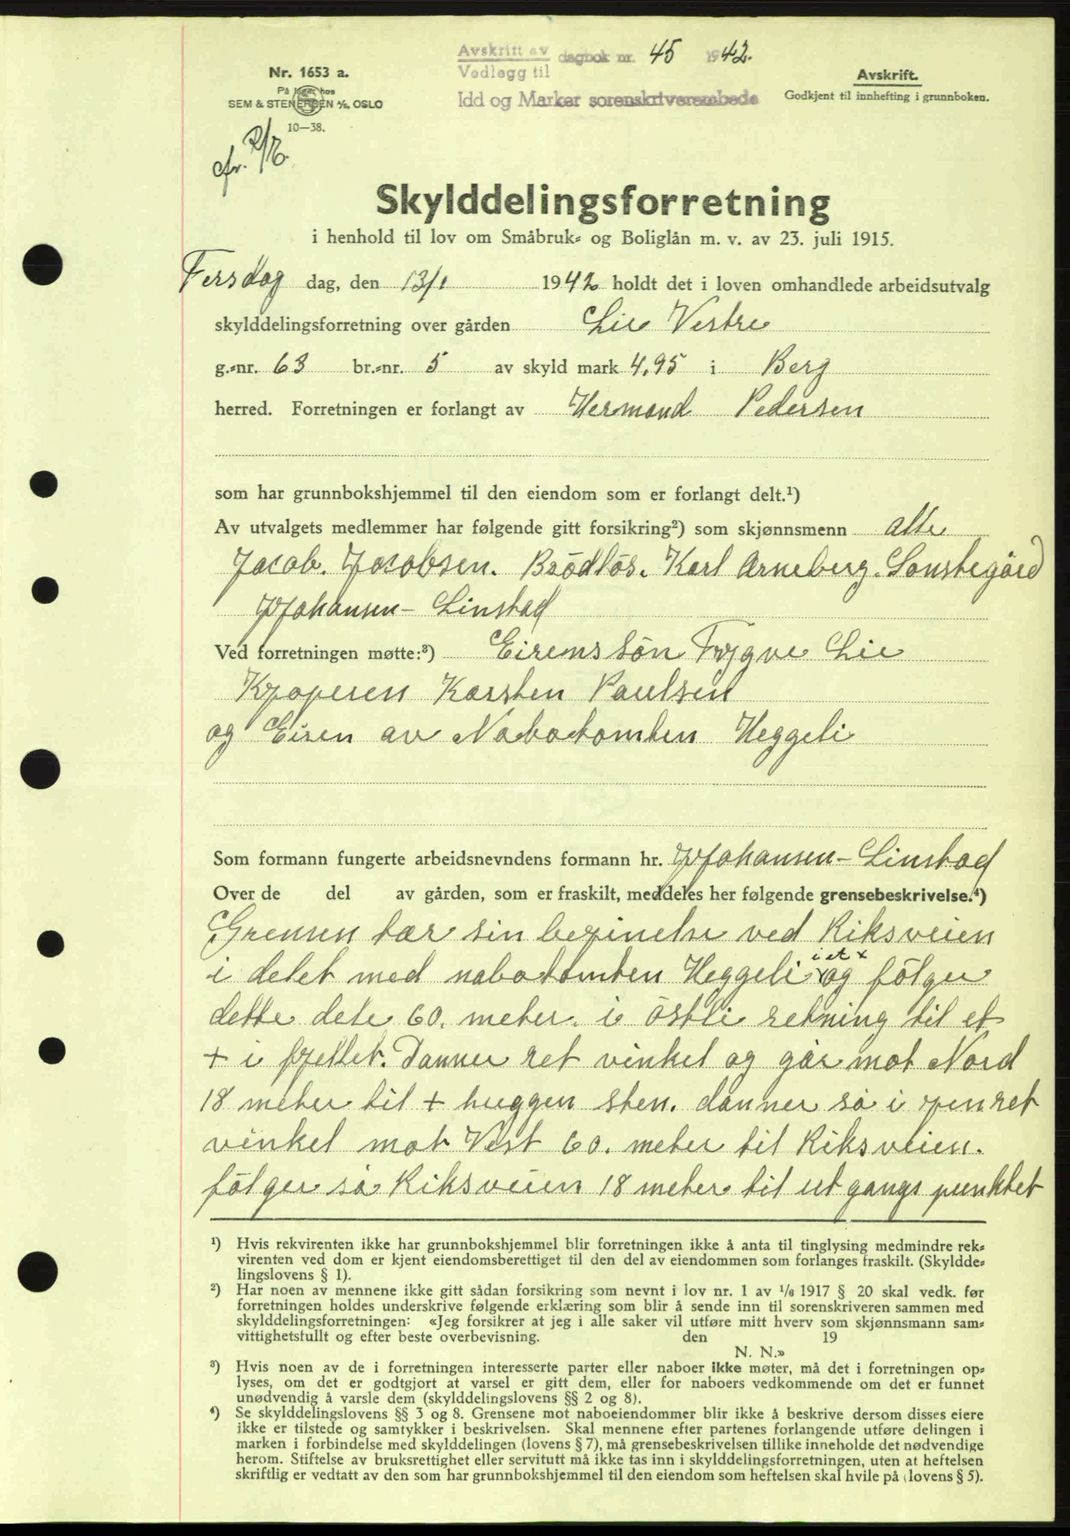 Avskritt av
Vedlegg til dagbok nr. 45 1942.
Idd og Marker sorenskriverembede
Nr. 1653 a.
På lager hos
SEM & STENERSEN A/S, OSLO
10—38.
Avskrift.
Godkjent til innhefting i grunnboken.
cfr.
Skylddelingsforretning
i henhold til lov om Småbruk- og Boliglån m. v. av 23. juli 1915.
Tersdag dag, den 13/1 1942 holdt det i loven omhandlede arbeidsutvalg
skylddelingsforretning over gården Lie Vestre
g.-nr. 63 br.-nr. 5 av skyld mark 4,95 i Berg
herred. Forretningen er forlangt av Hermand Pedersen
som har grunnbokshjemmel til den eiendom som er forlangt delt.¹)
Av utvalgets medlemmer har følgende gitt forsikring²) som skjønnsmenn alle
Jacob. Jacobsen. Brödlös. Karl Arneberg. Sonstegård
Johansen – Linstad
Ved forretningen møtte:³) Eirens sön Trygve Lie
Kjöperen Karsten Paulsen
og Eieren av Nabotomten Heggeli
Som formann fungerte arbeidsnevndens formann hr. Johansen – Linstad
Over de del av gården, som er fraskilt, meddeles her følgende grensebeskrivelse.⁴)
Grensen tar sin begynelse ved Riksveien
i delet med nabotomten Heggeli i et x og fölger
dette dele 60. meter. i östli retning til et
+ i fjellet. Danner ret vinkel og går mot Nord
18 meter til + huggen sten. danner så igjen ret
vinkel mot Vest 60. meter til Riksveien.
fölger så Riksveien 18 meter til utgangspunktet
¹) Hvis rekvirenten ikke har grunnbokshjemmel blir forretningen ikke å anta til tinglysing medmindre rek-
virenten ved dom er kjent eiendomsberettiget til den del av eiendommen som forlanges fraskilt. (Skyldde-
lingslovens § 1).
²) Har noen av mennene ikke gitt sådan forsikring som nevnt i lov nr. 1 av 1/6 1917 § 20 skal vedk. før
forretningen holdes underskrive følgende erklæring som blir å sende inn til sorenskriveren sammen med
skylddelingsforretningen: «Jeg forsikrer at jeg i alle saker vil utføre mitt hverv som skjønnsmann sam-
vittighetsfullt og efter beste overbevisning. den 19
N. N.»
³) Hvis noen av de i forretningen interesserte parter eller naboer ikke møter, må det i forretningen op-
lyses, om det er godtgjort at varsel er gitt dem, eller for naboers vedkommende om det er funnet
unødvendig å varsle dem (skylddelingslovens §§ 2 og 8).
⁴) Se skylddelingslovens §§ 3 og 8. Grensene mot naboeiendommer blir ikke å beskrive dersom disses eiere
ikke er tilstede og samtykker i beskrivelsen. Skal mennene efter partenes forlangende utføre delingen i
marken i forbindelse med skylddelingen (lovens § 7), må grensebeskrivelsen tillike inneholde det nødvendige
herom. Stiftelse av bruksrettighet eller servitutt må ikke tas inn i skylddelingsforretningen, uten at heftelsen
skriftlig er vedtatt av den som har grunnbokshjemmel til den eiendom som heftelsen skal hvile på (lovens § 5).